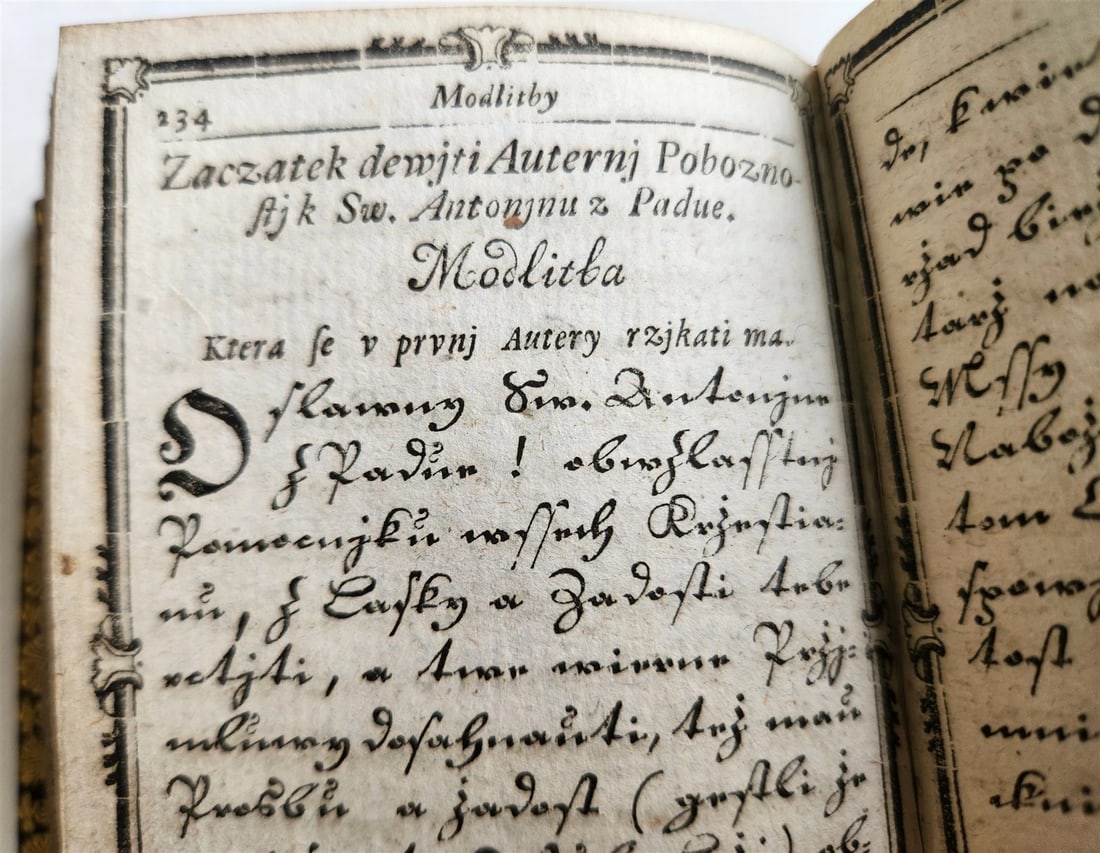 234
Modlitby
Zaczatek dewjti Auternj Pobozno-
stj k Sw. Antonjnu z Padue.
Modlitba
Ktera se v prvnj Autery rzjkati ma.
O slawny Sw. Antonjne
z Padue ! obwzlasstnj
Pomocnjku wssech Krżestia:
nu, z Lasky a Żadosti tebe
vctjti, a twe wierne Prżj:
mluwy dosahnauti, též mau
Prosbu a żadost ( gestli że
de, k
wie po
rżad
tarż na
Mssy
Nabož
tom
spow
tost
mni